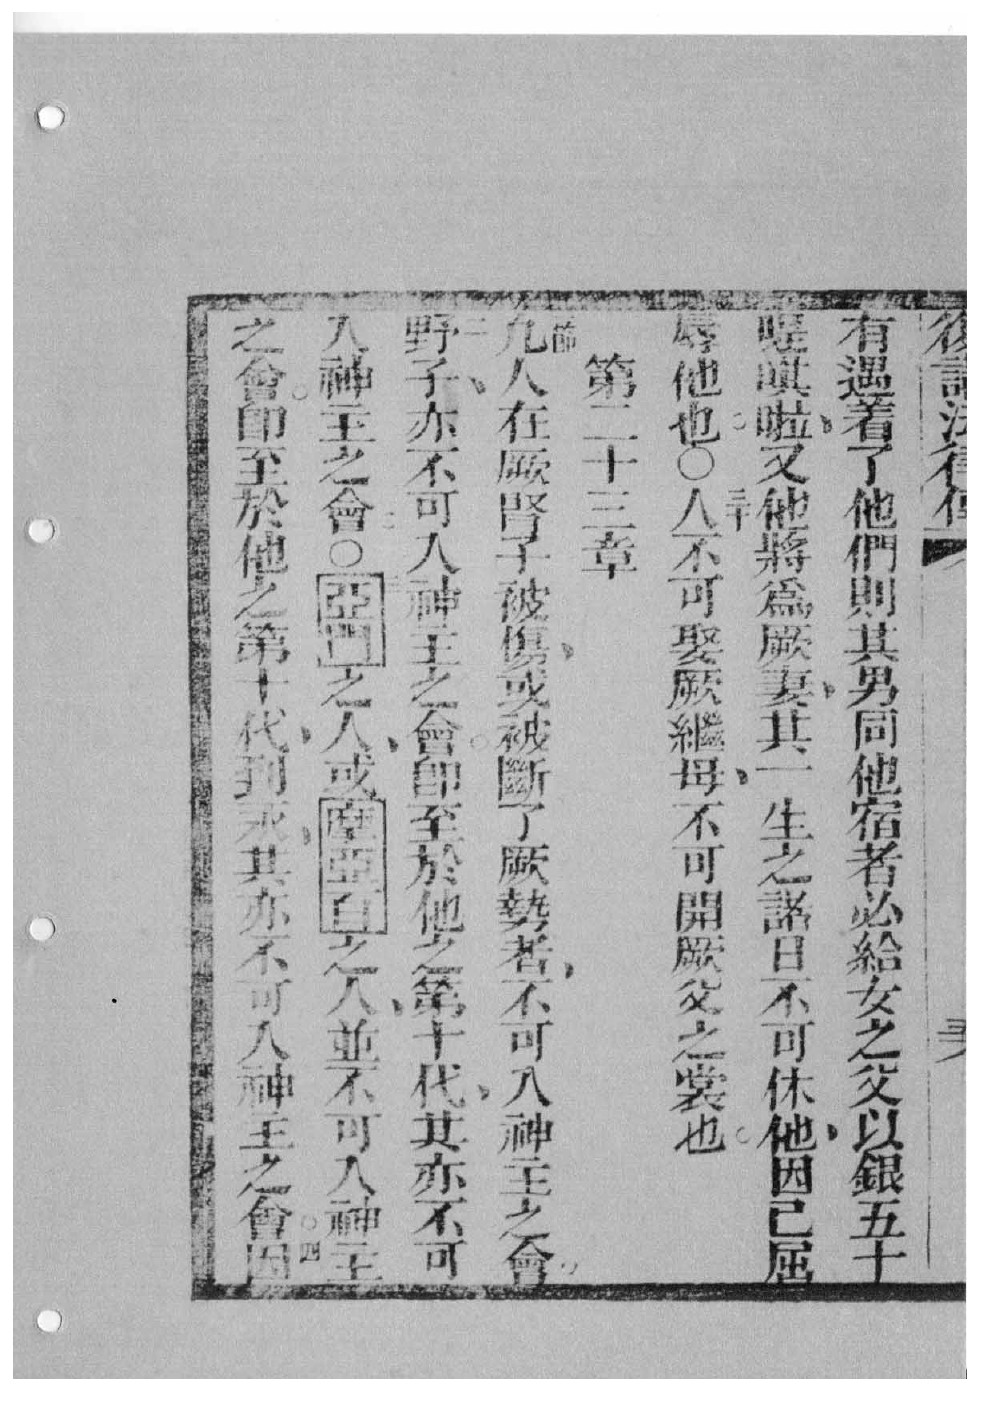 復講法律傳
有遇着了他們則其男同他宿者必給女之父以銀五十
㖿唭啦、又他將為厥妻、其一生之諸日不可休他、因已屈
辱他也。○三十人不可娶厥繼母、不可開厥父之裳也。
第二十三章
一節凡人在厥腎子被傷、或被斷了厥勢者、不可入神主之會。
二野子、亦不可入神主之會。即至於他之第十代、其亦不可
入神主之會。○三亞門之人、或摩亞百之人、並不可入神主
之會。即至於他之第十代、到永、其亦不可入神主之會。○四因